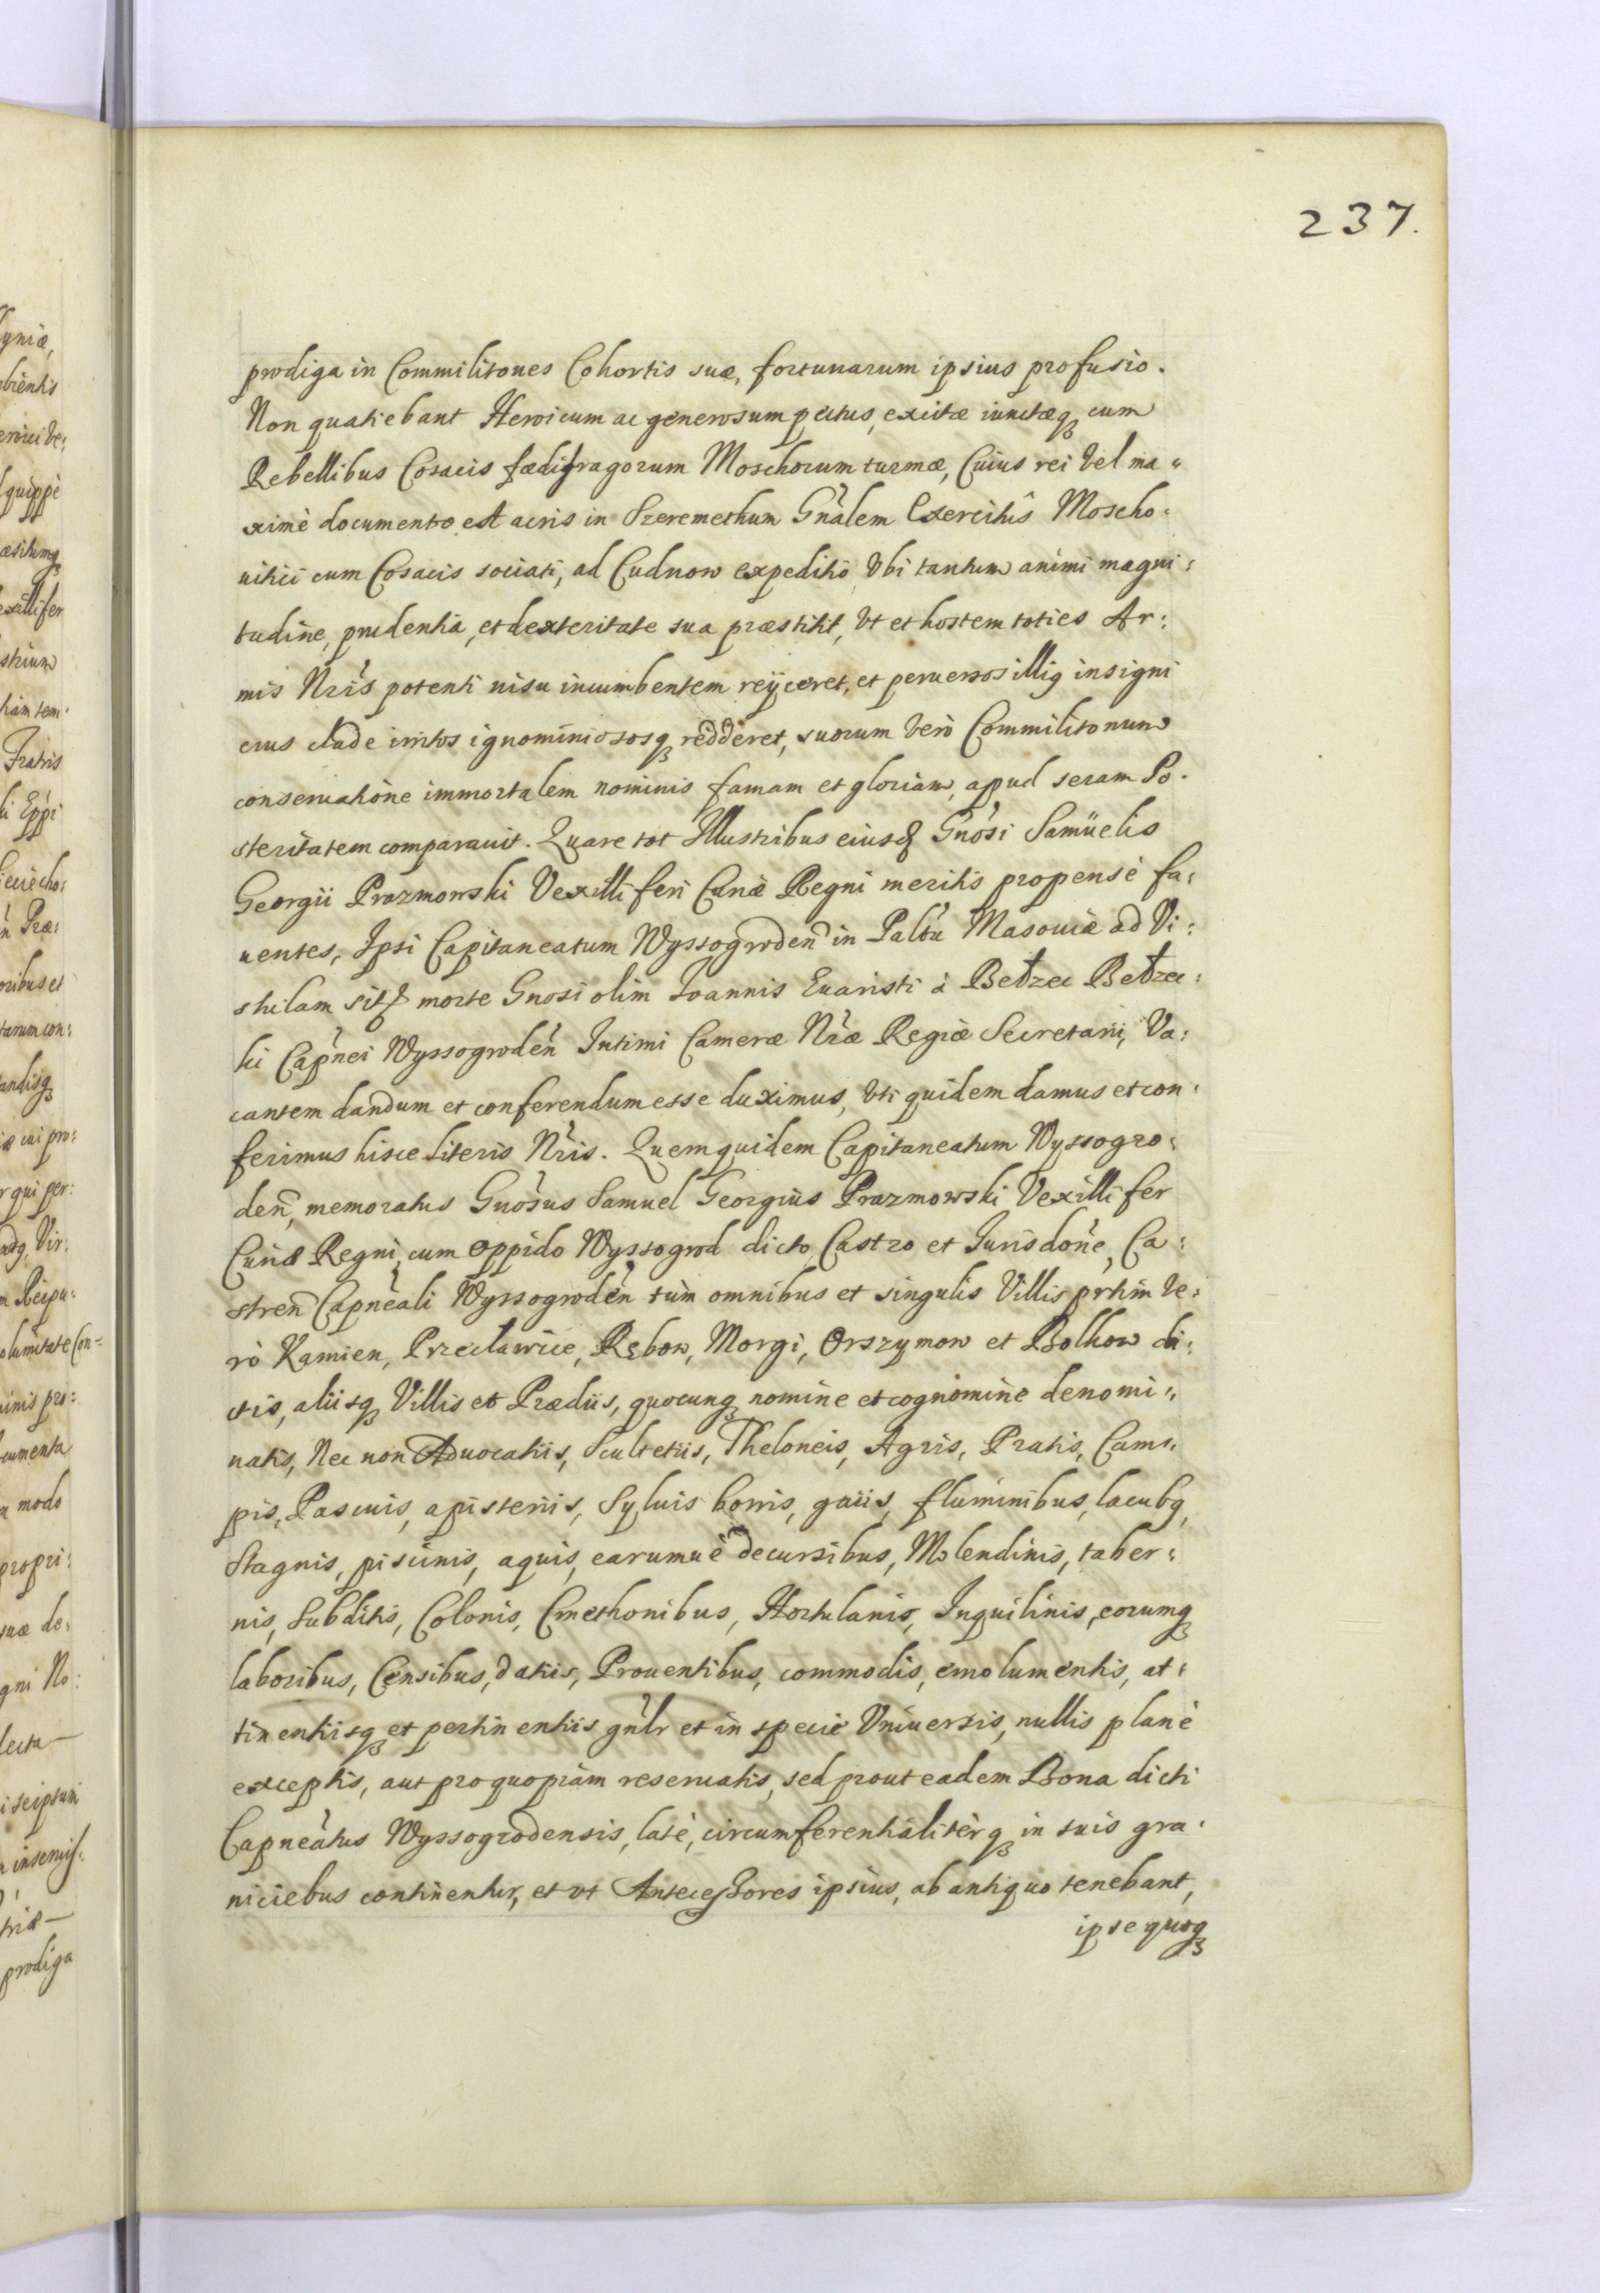 237.
prodiga in Commilitones Cohortis suæ, fortunarum ipsius profusio.
Non quatiebant Heroicum ac generosum pectus, excitæ iunctæq cum
Rebellibus Cosacis fædifragorum Moschorum turmæ, Cuius rei Vel ma=
ximè documento est acris in Szeremethum Gnalem Exercitûs Moscho=
uitici cum Cosacis sociati, ad Cudnow expeditio, Vbi tantum animi magni=
tudine, prudentia, et dexteritate sua præstitit, Vt et hostem toties Ar=
mis Nris potenti nisu incumbentem reijceret, et peruersos illiq insigni
eius clade irritos ignominiososq redderet, suorum Verò Commilitonum
conseruatione immortalem nominis famam et gloriam, apud seram Po=
steritatem comparauit. Quare tot Illustribus eiusd Gnosi Samüelis
Georgii Prazmowski Vexilliferi Curiæ Regni meritis propensè fa=
uentes, Ipsi Capitaneatum Wyssogroden in Paltu Masouiæ ad Vi=
stulam sit morte Gnosi olim Ioannis Euaristi à Bełzec Bełzec=
ki Capnei Wyssogroden Intimi Cameræ Nræ Regiæ Secretarii, Va=
cantem dandum et conferendum esse duximus, Vti quidem damus et con=
ferimus hisce literis Nris. Quem quidem Capitaneatum Wyssogro=
den, memoratus Gnosus Samuel Georgius Prazmowski Vexillifer
Curiæ Regni, cum Oppido Wyssogrod dicto, Castro et Jurisdone, Ca=
stren Capneali Wyssogroden tùm omnibus et singulis Villis prtim Ve=
rò Kamien, Przecławice, Rębow, Morgi, Orszymow et Bolkow di=
ctis, aliisq Villis et Prædiis, quocunq nomine et cognomine denomi=
natis, Nec non Aduocatiis, Scultetiis, Theloneis, Agris, Pratis, Cam=
pis, Pascuis, apisteriis, Syluis borris, gaiis, fluminibus, lacubq,
Stagnis, piscinis, aquis, earumuè decursibus, Molendinis, taber=
nis, Subditis, Colonis, Cmethonibus, Hortulanis, Inquilinis, eorumq
laboribus, Censibus, datiis, Prouentibus, commodis, emolumentis, at=
tinentiisq et pertinentiis gnlr et in specie Vniuersis, nullis planè
exceptis, aut pro quopiam reseruatis, sed prout eadem Bona dicti
Capneatus Wyssogrodensis, latè, circumferentialitèrq in suis gra=
niciebus continentur, et vt Antecessores ipsius, ab antiquo tenebant,
ipse quoq